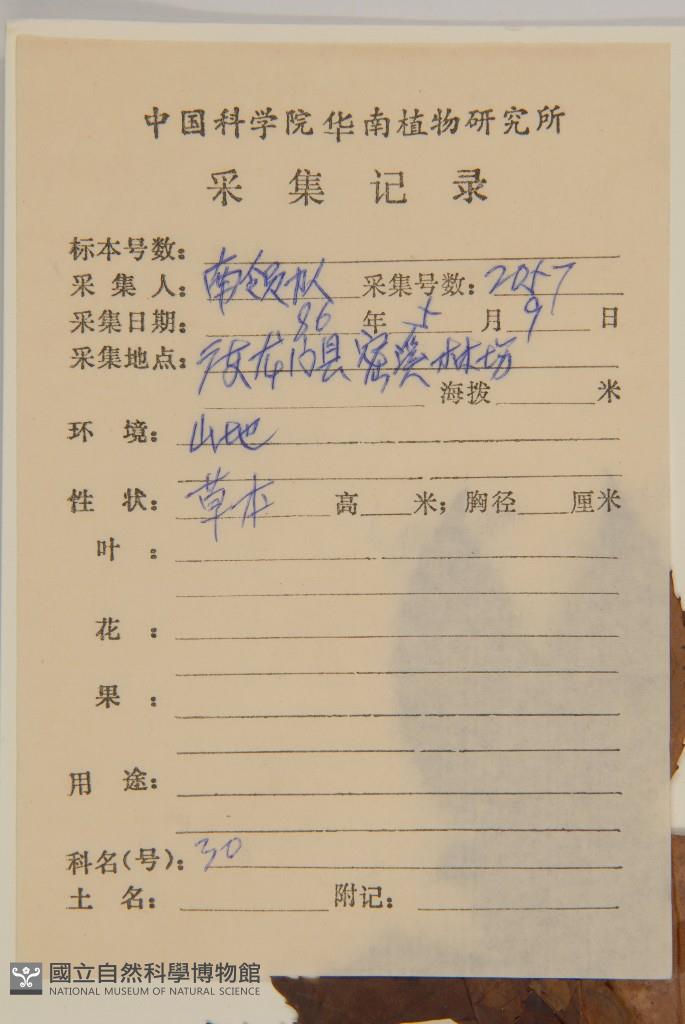 中国科学院华南植物研究所
采集记录
标本号数：
采集人：南岭队 采集号数：2057
采集日期：86年5月9日
采集地点：龙门县密溪林场
海拨 米
环境：山地
性状：草本 高 米；胸径 厘米
叶：
花：
果：
用途：
科名(号)：30
土名： 附记：
國立自然科學博物館
NATIONAL MUSEUM OF NATURAL SCIENCE